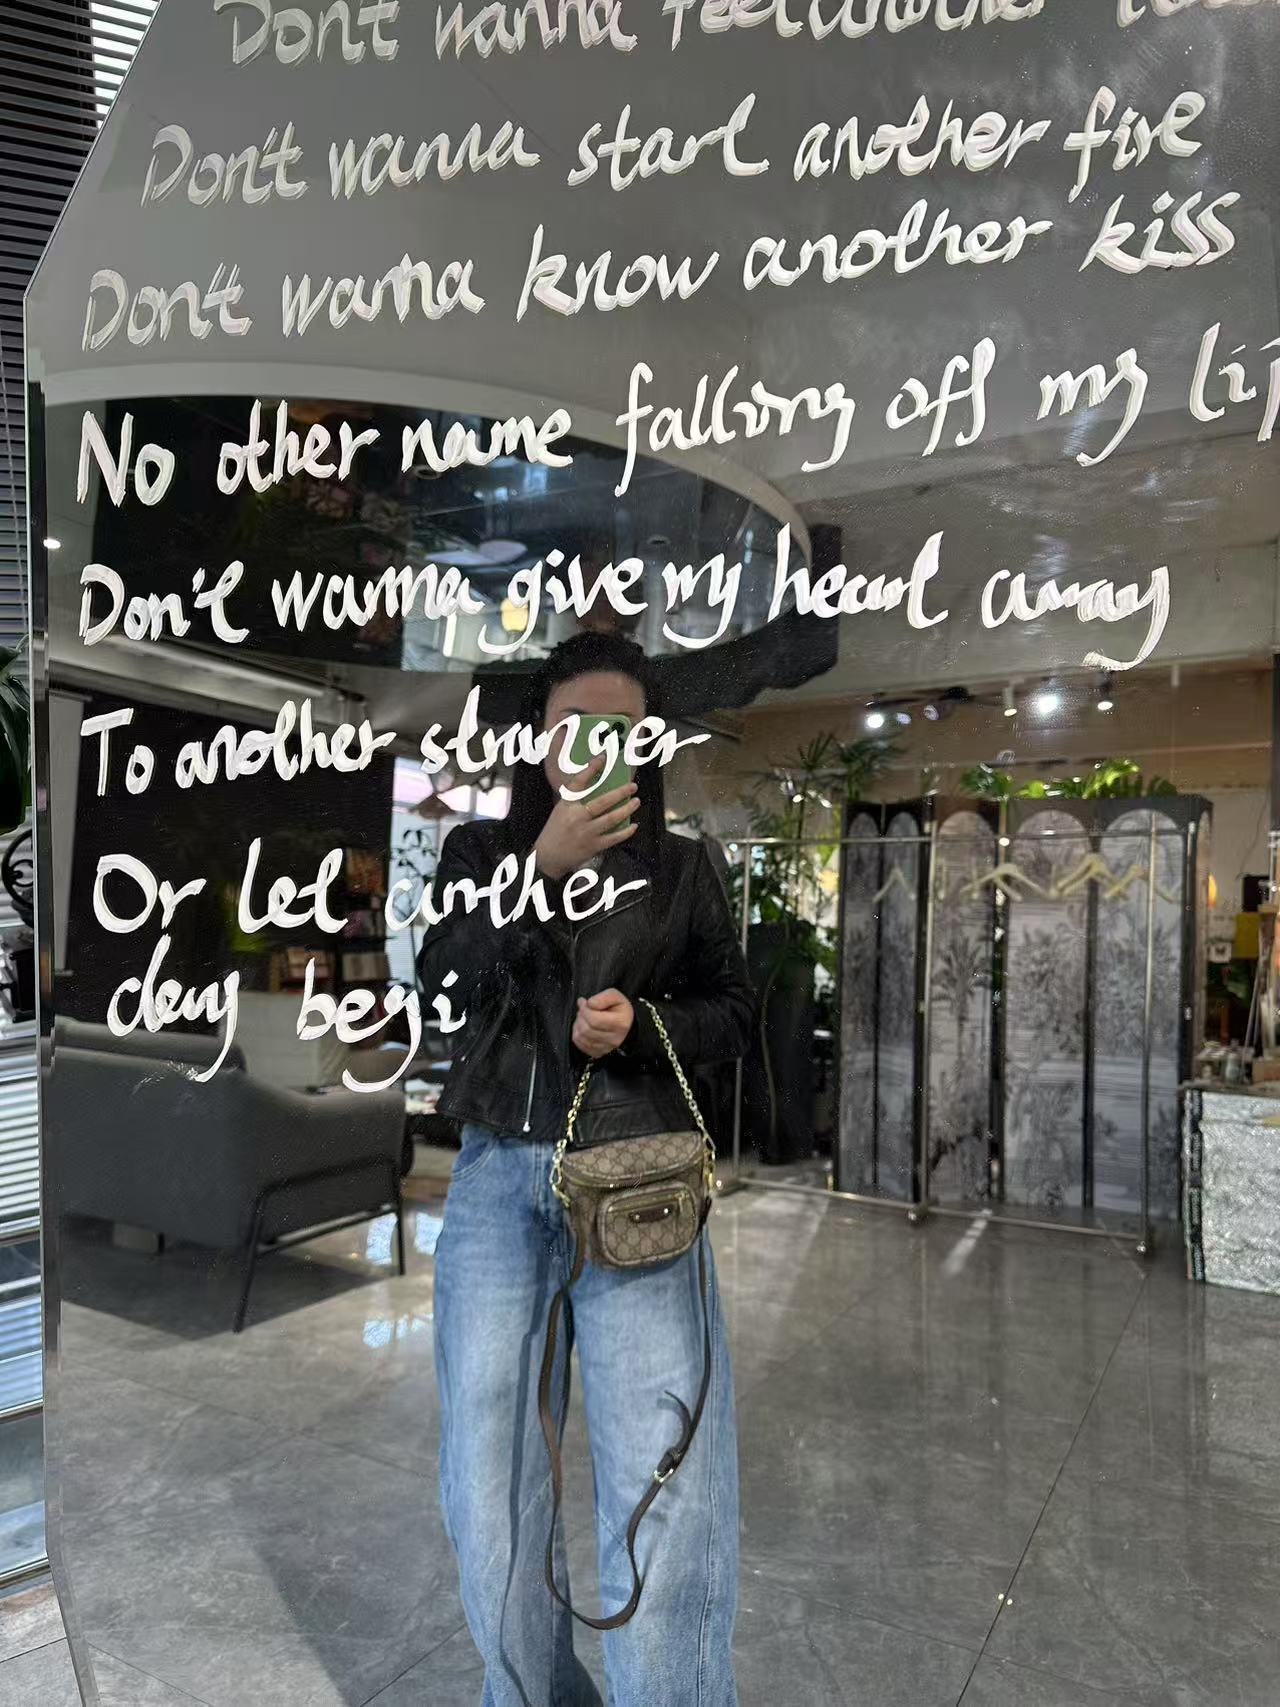 Don't wanna feel another
Don't wanna start another fire
Don't wanna know another kiss
No other name falling off my lip
Don't wanna give my heart away
To another stranger
Or let another
day begi